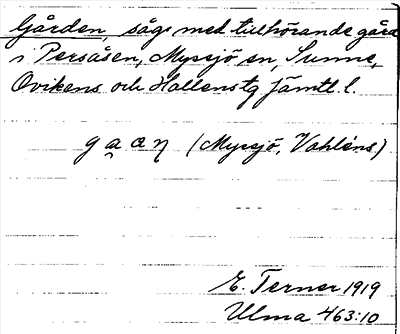 Gården, såg med tillhörande gård
i Persåsen, Myssjö sn, Sunne,
Ovikens och Hallens tg Jämtl. l.
(Myssjö, Vahléns)
E. Terner 1919
Ulma 463:10